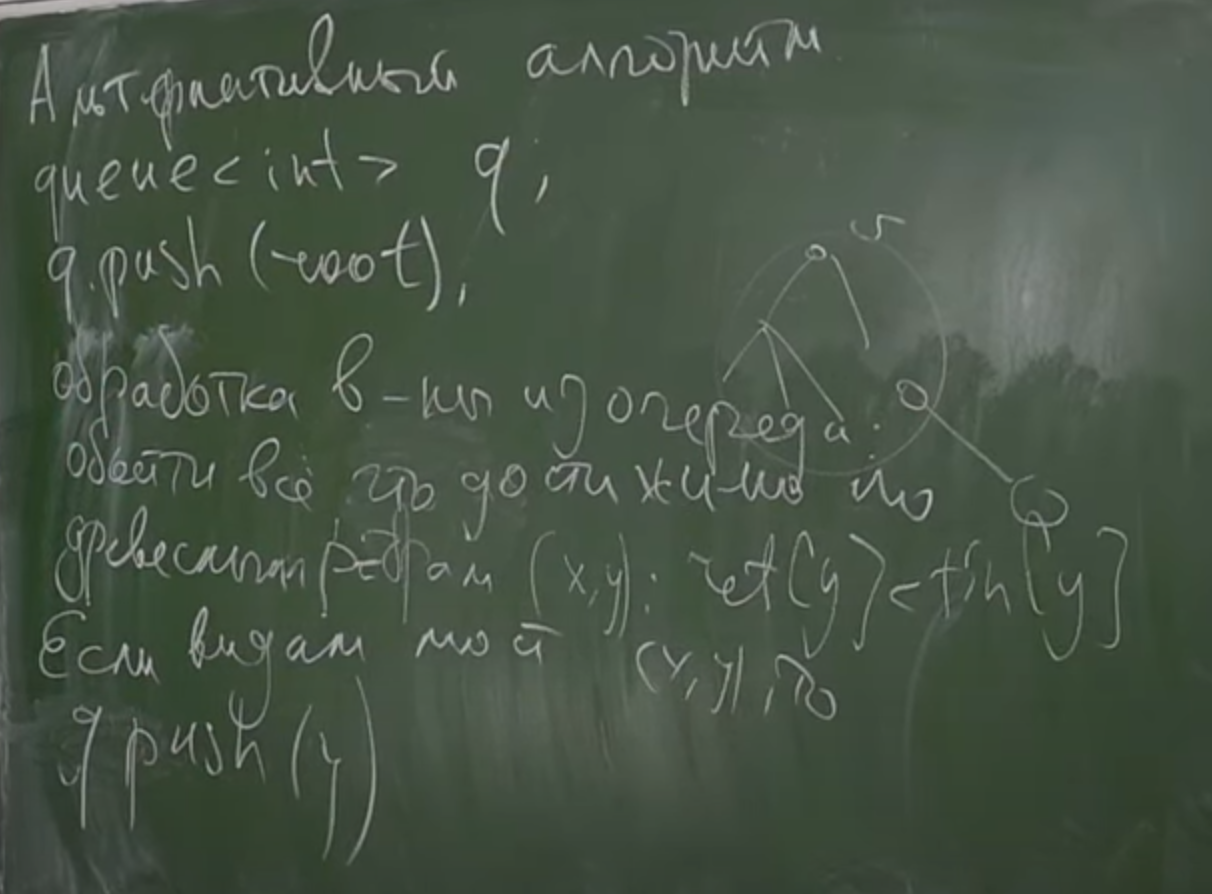 Альтернативный алгоритм
queue<int> q;
q.push(root);
обработка в-ны из очереди:
обойти всё что достижимо по
древесным рёбрам (x,y): ret[y]<tin[y]
Если видим мост (x,y), то
q.push(y)